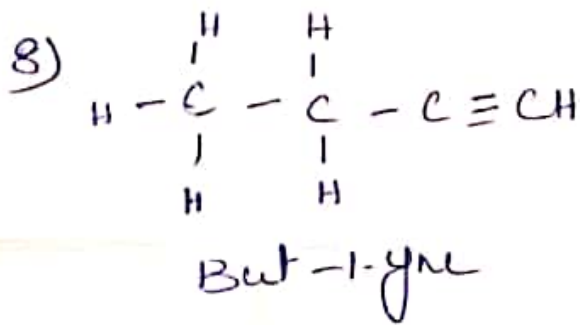 8)
H H
H - C - C - C ≡ CH
H H
But-1-yne